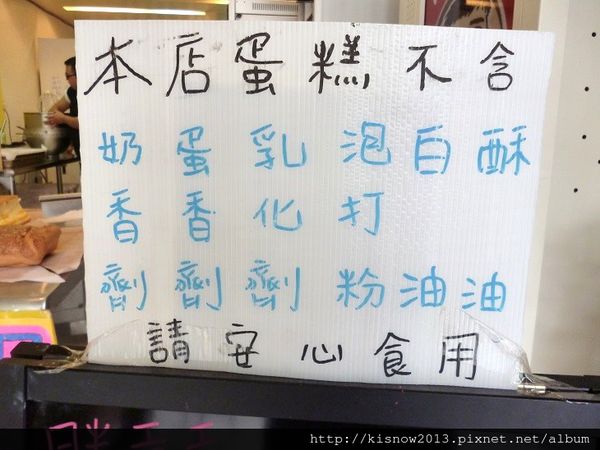 本店蛋糕不含
奶香劑
蛋香劑
乳化劑
泡打粉
白油
酥油
請安心食用
http://kisnow2013.pixnet.net/album